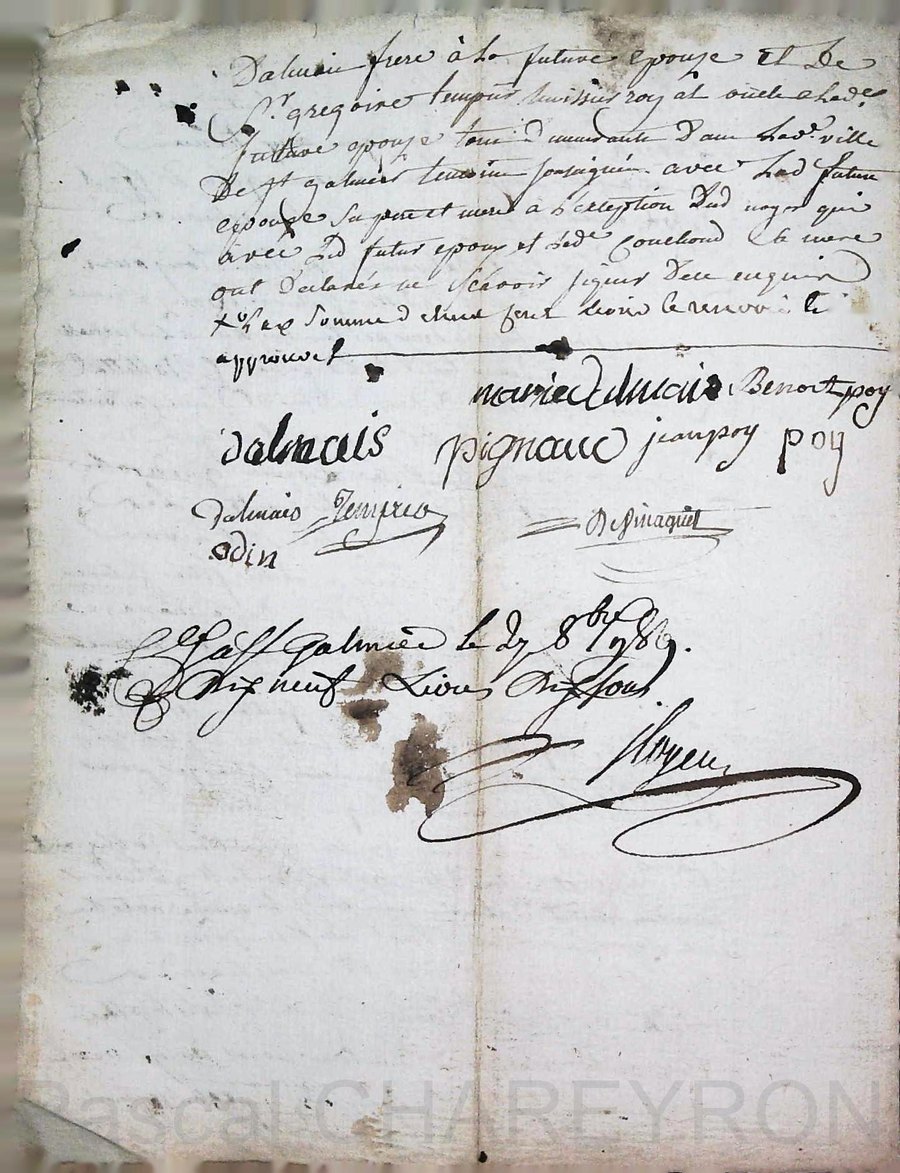 Dalmais frere à la future epouse et De
Sr. gregoire tempier huissier royal oncle a lade.
future epouse tous demeurants Dans lade. ville
De st galmier temoins soussignés avec lad future
epouse sa pere et mere a lexception Dud noyer qui
avec led futur epoux et lade Couchoud sa mere
ont Declarés ne Scavoir signer De ce enquis
Somme d le renvoi
approuvé
marie dalmais Benoit poy
Dalmais pignaud jean poy poy
dalmais tempier
odin
Cllé à St Galmier le 27 8bre 1786.
R Dix neuf Livres Dix sous